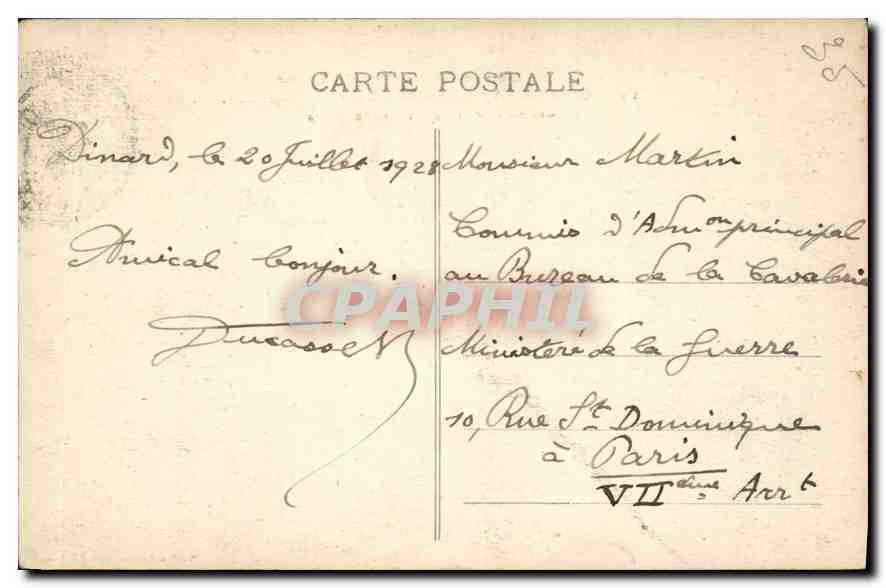 CARTE POSTALE
Dinard, le 20 Juillet 1928
Amical bonjour.
Monsieur Martin
Commis d'Admon principal
au Bureau de la Cavalerie
Ministère de la Guerre
10, Rue St Dominique
à Paris
VIIème Arrt
CPAPHIL
35